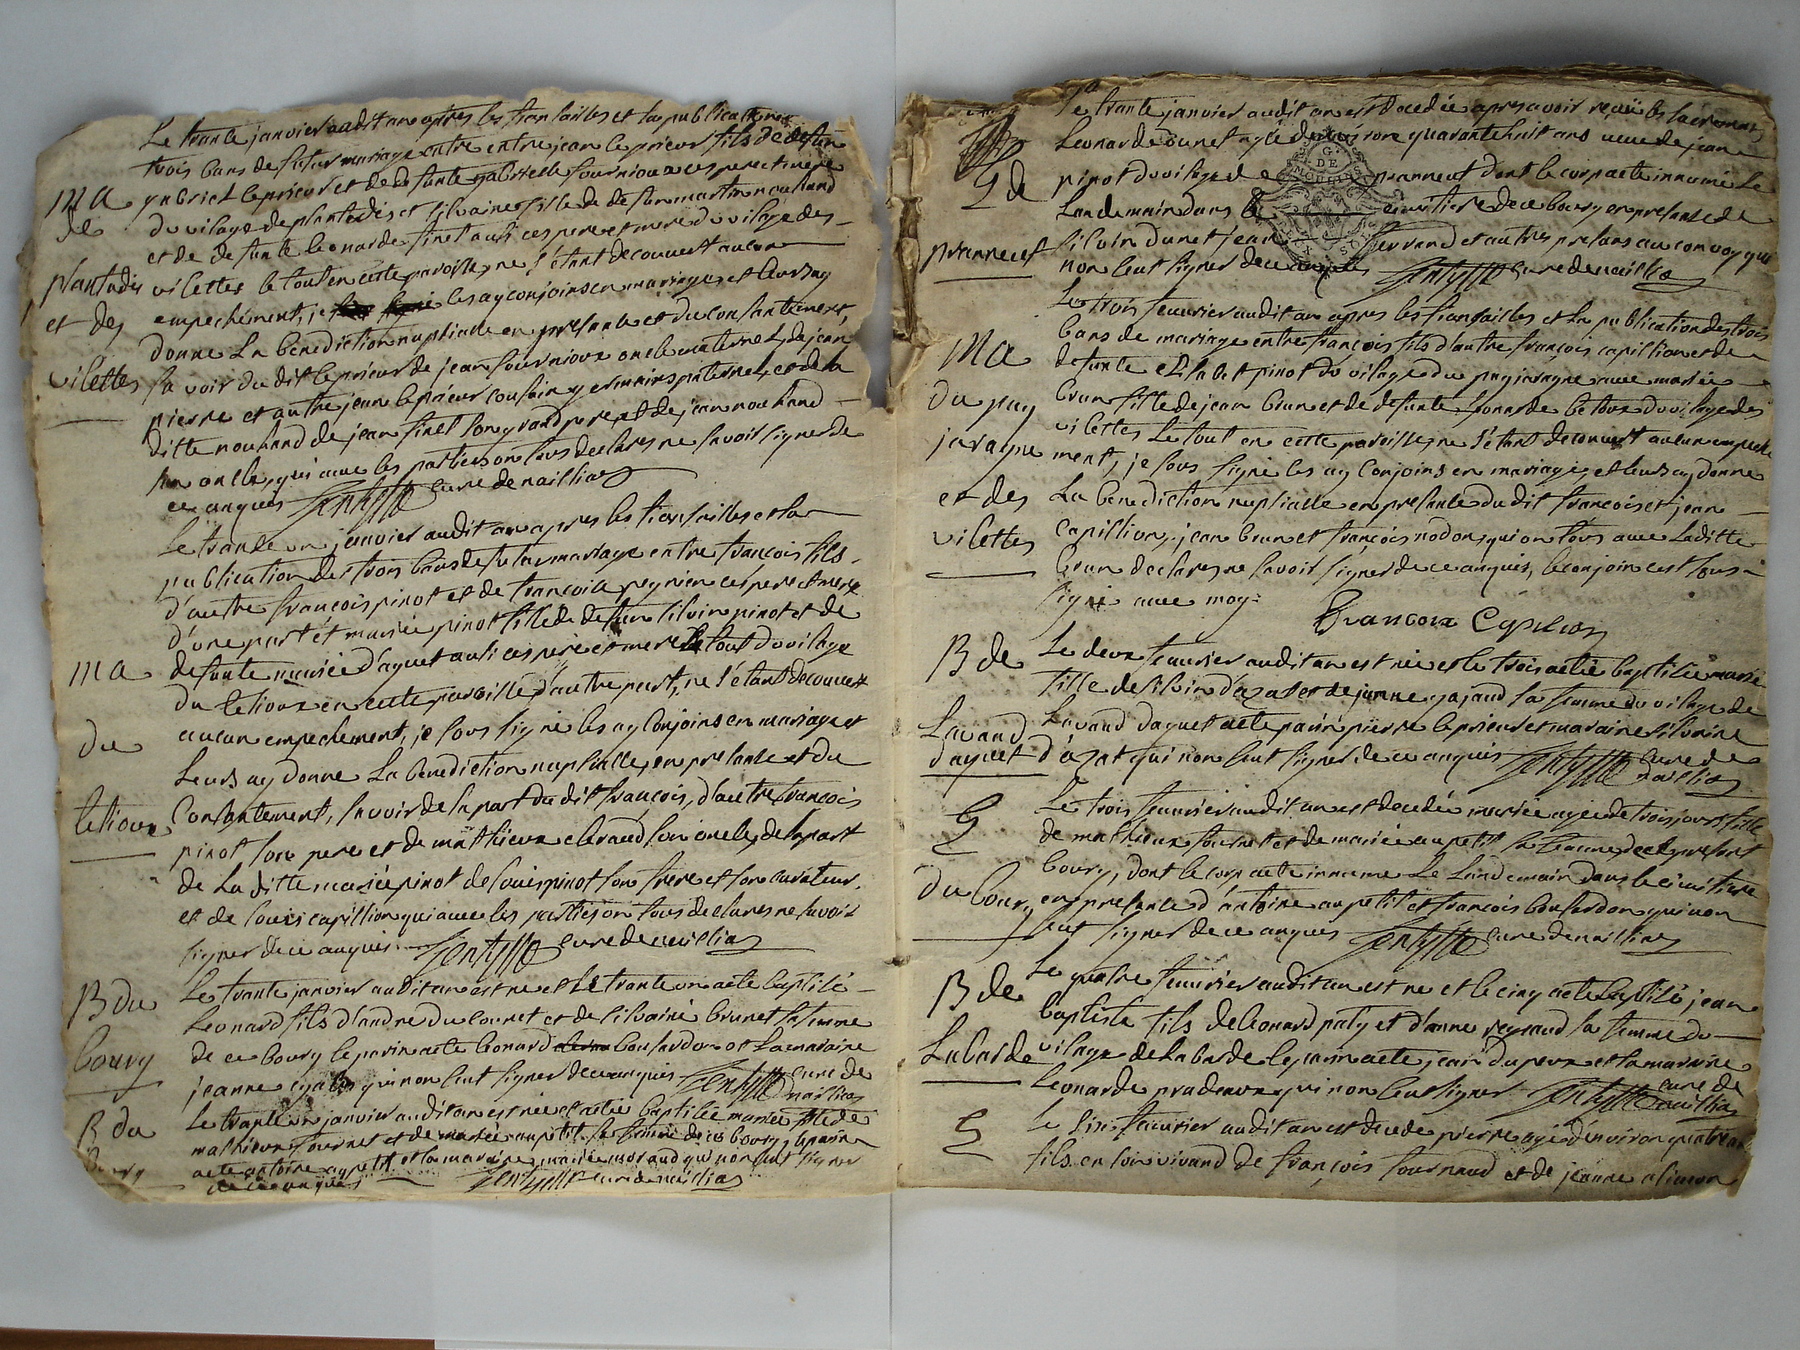 Le trante janvier audit an après les fiansailles et la publication des
trois bans de futur mariage entre entre jean leprieur fils de defun
gabriel leprieur et de defunte gabrielle fournioux ces pere et mere
ma
de
du vilage de plantadis et silvaine fille de defun martin nouhand
et de defunte leonarde finet ausi ces pere et mere du vilage des
plantadis
vilettes le tout en cette paroisse, ne s'étant decouvert aucun
et des
empechement, je les ay conjoins en mariage, et leurs ay
donne La benediction nuptialle en presante et du consantement,
vilettes
sa voir du dit leprieur de jean fournioux oncle maternel, de jean
pierre et autre jean leprieur cousin germains paternel, et de la
ditte nouhand de jean finet son grand pere et de jean nouhand
son oncle, qui avec les parties on tous declares ne savoir signer de
ce anquis curé de naillia
Le trante un janvier audit an apres les fiansailles et la
publication des trois bans de futur mariage entre françois fils
d'autre françois pinot et de françoise peynier ces pere et mere
d'une part et marie pinot fille de defun silvin pinot et de
ma
defunte marie d'aguet ausi ces pere et mere le tout du vilage
du letioux en cette paroisse d'autre part, ne s'étant decouvert
du
aucun empechement, je sous signé les ay conjoins en mariage et
leurs ay donne La benediction nuptialle, en presante et du
letioux
consantement, savoir de la part du dit françois, d'autre françois
pinot son pere et de mathieux son oncle, de la part
de La ditte marie pinot de louis pinot son frere et son curateur,
et de louis capillion qui avec les parties on tous declares ne savoir
signer de ce anquis curé de naillia
B du
Le trante janvier audit an est ne et le trante un acté baptisé
Leonard fils d'andre du counet et de silvaine brunet sa femme
bourg
de ce bourg le parin acté leonard bousardon et la maraine
jeanne qui non seut signer de ce anquis curé de
naillia
B du
Le trante un janvier audit an est née et actée baptisée marie fille de
mathieux fournet et de marie aupetit sa femme de ce bourg, le parin
bourg
acté antoine aupetit et la maraine marie moraud qui non seut signer
de ce anquis curé de naillia
Le trante janvier audit an est decedée apres avoir reçu les sacremens,
Leonarde dunet agée de environ quarante huit ans veuve de jean
S de
pinot du vilage de pranneuf dont le corp acté innumé Le
Landemain dans le cimetiere de ce bourg en presante de
pranneuf
silvin dunet jean ferrand et autres presans au convoy qui
non seut signer de ce anquis curé de naillia
Le trois feuvrier audit an apres les fiansailles et La publication des trois
bans de mariage entre françois fils d'autre françois capillion et de
ma
defunte pinot du vilage du puyjaragne avec marie
du puy
brun fille de jean brun et de defunte leonarde letoux du vilage des
jaragne
vilettes Le tout en cette paroisse, ne s'étant decouvert aucun empeche
ment, je sous signé les ay conjoins en mariage, et leurs ay donne
et des
La benediction nuptialle en presante du dit françois et jean
vilettes
capillion, jean brun et françois nodon, qui on tous avec Laditte
brun declares ne savoir signer de ce anquis, le conjoin cest sous
signé avec moy:
françoix Capilion
B de
Le deux feuvrier audit an est née et le trois actée baptisée marie
fille de silvin d'azat et de janne gajaud sa femme du vilage de
Lavaud
Lavaud daguet acté parin pierre leprieur et maraine silvaine
daguet
d'azat qui non seut signer de ce anquis curé de
naillia
S
Le trois feuvrier audit an est decedée marie agée de trois jours fille
de mathieux fournet et de marie aupetit sa femme, de ce presant
bourg, dont le corp acté innumé Le Landemain dans le cimitiere
du bourg
en presante d'antoine aupetit et françois bousardon qui non
seut signer de ce anquis curé de naillia
B de
Le quatre feuvrier audit an est ne et le cinq acté baptisé jean
baptiste fils de leonard paty et d'anne reynaud sa femme du
Labarde
vilage de labarde le parin acté jean dupeux et la maraine
leonarde pradeaux qui non seut signer curé de
naillia
S
Le six feuvrier audit an est decede pierre agé d'environ quatre an
fils en son vivand de françois fournaud et de jeanne alimon